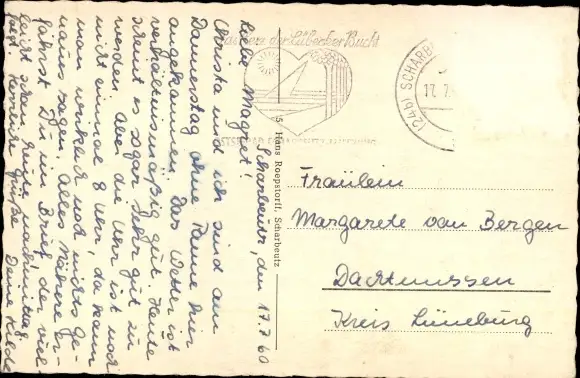 Scharbeutz, den 17.7.60
Liebe Magret!
Christa und ich sind am
Donnerstag ohne Panne hier
angekommen. Das Wetter ist
verhältnismäßig gut. Heute
scheint es sogar sehr gut zu
werden. Aber die Uhr ist noch
nicht einmal 8 Uhr, da kann
man wirklich noch nichts ge-
naues sagen. Alles Nähere er-
fährst Du im Brief, der viel-
leicht schon heute nachmittag
folgt. Herzliche Grüße Deine Hilde
der Lübecker Bucht
(24b) SCHARB
17. 7.
Hans Roepstorff, Scharbeutz
Fräulein
Margarete van Bergen
Dachtmissen
Kreis Lüneburg